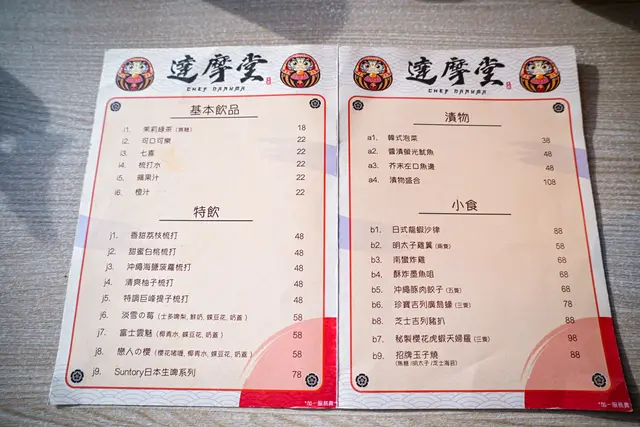 達摩堂
CHEF DARUMA
基本飲品
i1. 茉莉綠茶 (無糖) 18
i2. 可口可樂 22
i3. 七喜 22
i4. 梳打水 22
i5. 蘋果汁 22
i6. 橙汁 22
特飲
j1. 香甜荔枝梳打 48
j2. 甜蜜白桃梳打 48
j3. 沖繩海鹽菠蘿梳打 48
j4. 清爽柚子梳打 48
j5. 特調巨峰提子梳打 48
j6. 淡雪の莓 (士多啤梨, 鮮奶, 蝶豆花, 奶蓋) 58
j7. 富士雲魅 (椰青水, 蝶豆花, 奶蓋) 58
j8. 戀人の櫻 (櫻花啫喱, 椰青水, 蝶豆花, 奶蓋) 58
j9. Suntory日本生啤系列 78
*加一服務費*
達摩堂
CHEF DARUMA
漬物
a1. 韓式泡菜 38
a2. 醬漬螢光魷魚 48
a3. 芥末左口魚邊 48
a4. 漬物盛合 108
小食
b1. 日式龍蝦沙律 88
b2. 明太子雞翼 (兩隻) 58
b3. 南蠻炸雞 58
b4. 酥炸墨魚咀 58
b5. 沖繩豚肉餃子 (五隻) 58
b6. 珍寶吉列廣島蠔 (三隻) 78
b8. 芝士吉列豬扒 88
b7. 秘製櫻花虎蝦天婦羅 (三隻) 98
b9. 招牌玉子燒 88
(焦糖 /明太子 /芝士海苔)
*加一服務費*